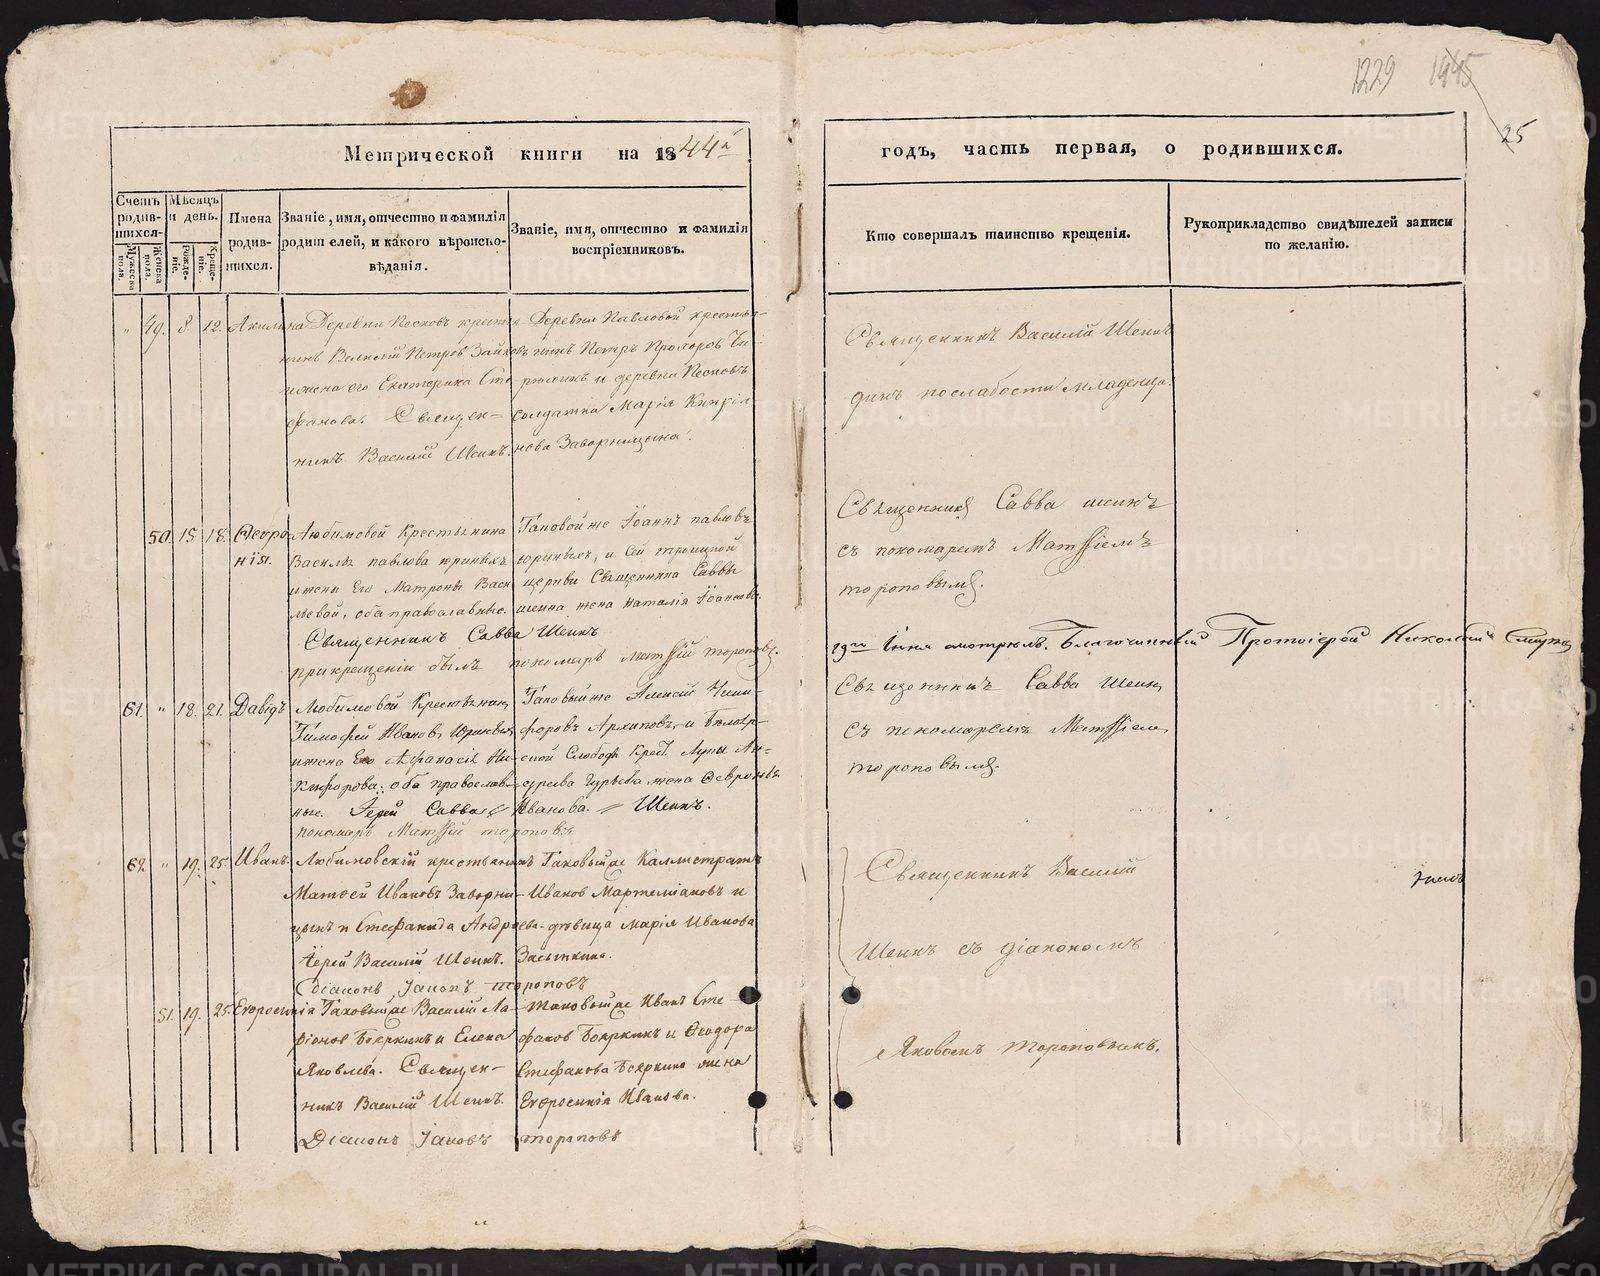 1229 1445
25
Метрической книги на 1844й
годъ, часть первая, о родившихся.
Счетъ родившихся.
Мужеска пола.
Женска пола.
Мѣсяцъ и день.
Рожденіе.
Крещеніе.
Имена родившихся.
Званіе, имя, отчество и фамилія родителей, и какого вѣроисповѣданія.
Званіе, имя, отчество и фамилія воспріемниковъ.
Кто совершалъ таинство крещенія.
Рукоприкладство свидѣтелей записи по желанію.
" 49. 8 12. Акилина
Деревни Песковъ крестья-
нинъ Василій Петровъ Зайковъ
и жена его Екатерина Сте-
фанова. Священ-
никъ Василій Шеинъ.
Деревни Павловой крестья-
нинъ Петръ Прохоровъ
и деревни Песковъ
солдатка Марія Кипрія-
нова Заворницына.
Священникъ Василій Шеинъ
по слабости младенца.
50. 15 18. Феврония.
Любимовой Крестьянина
Василья павлова юриныхъ
и жены Его Матроны Васи
льевой, оба православные.
Священникъ Савва Шеинъ
при крещеніи былъ пономарь Матѳій тороповъ.
Таковой же Іоаннъ павловъ
юриныхъ, и Сей троицкой
церкви Священника Саввы
шеина жена Наталія Іоаннова.
Священникъ Савва шеинъ
съ пономаремъ Матѳіемъ
тороповымъ.
19го Іюня смотрѣлъ. Благочинный Протоіерей Николай
61. " 18. 21. Давидъ
Любимовой Крестьянинъ
Тимофей Ивановъ Юриныхъ
и жена Его Афанасія Ни-
кифорова: оба православ-
ные. Іерей Савва Ивановъ Шеинъ.
пономарь Матѳій тороповъ
Таковый же Алексій Ники-
форовъ Архиповъ, и Бѣлояр-
ской Слободы Крест. Луки Ан-
дреева жена Февронья
Священникъ Савва Шеинъ
съ пономаремъ Матѳіемъ
тороповымъ.
62. " 19. 25. Иванъ.
Любимовскій крестьянинъ
Матѳей Ивановъ Заворни-
цынъ и Стефанида Андреева
Іерей Василій Шеинъ.
Діаконъ Іаковъ тороповъ
Таковый же Каллистратъ
Ивановъ Мартеміановъ и
дѣвица Марія Иванова
Засыпкина.
Священникъ Василій
Шеинъ съ діакономъ
Яковомъ Тороповымъ.
51. 19. 25. Евфросинія
Таковый же Василій Ла-
ріоновъ Бояркинъ и Елена
Яковлева. Священ-
никъ Василій Шеинъ.
Діаконъ Іаковъ тороповъ
таковый же Иванъ Сте-
фановъ Бояркинъ и Феодора
Стефанова Бояркина жена
Евфросинія Иванова.
METRIKI.GASO-URAL.RU